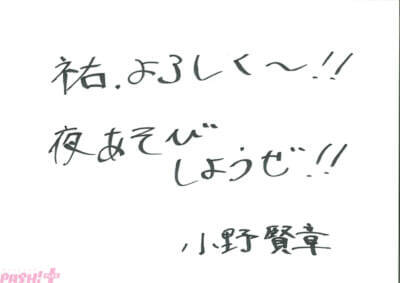 祐.よろしく〜!!
夜あそび
しようぜ!!
小野賢章
PASH!+